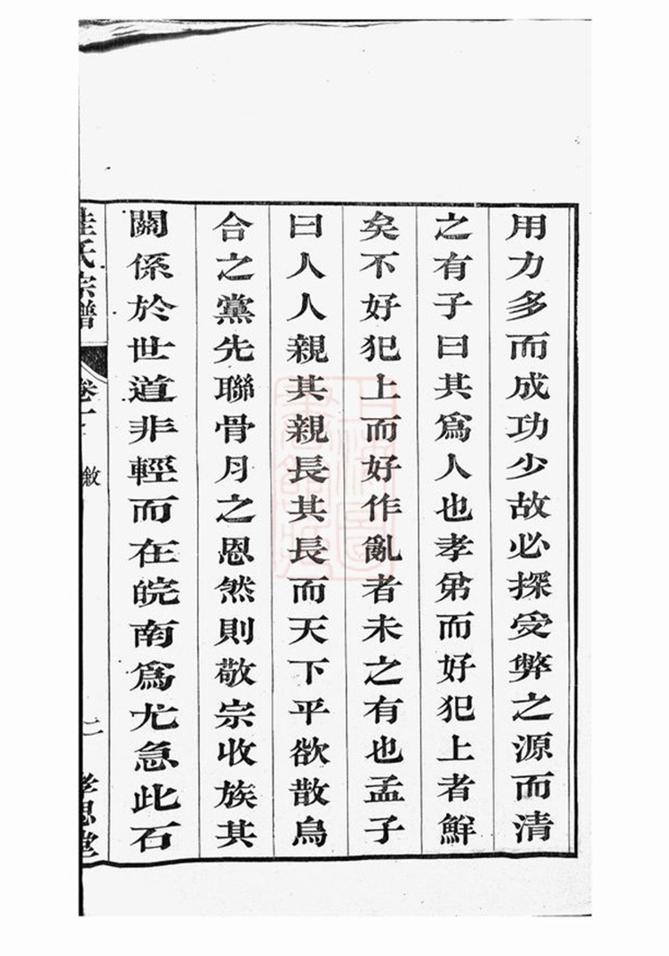 用力多而成功少故必探受弊之源而清
之有子曰其爲人也孝弟而好犯上者鮮
矣不好犯上而好作亂者未之有也孟子
曰人人親其親長其長而天下平欲散烏
合之黨先聯骨月之恩然則敬宗收族其
關係於世道非輕而在皖南爲尤急此石
氏宗譜
卷一
敘
二
孝思堂